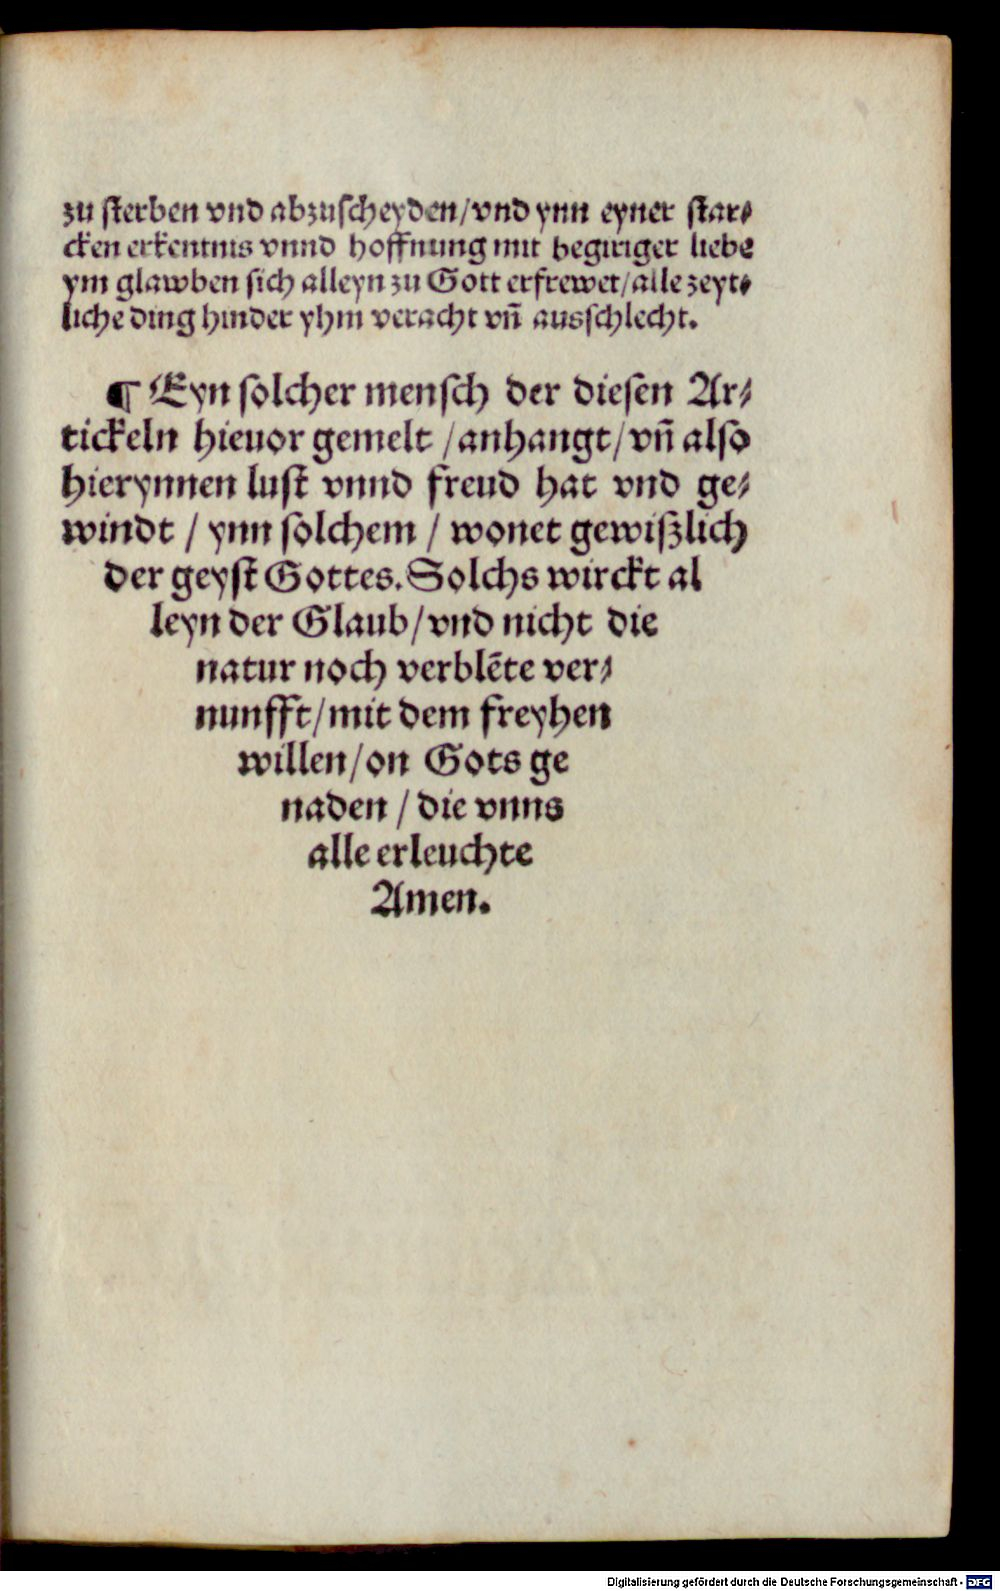 zu ſterben vnd abzuſcheyden/vnd ynn eyner ſtar⸗
cken erkentnis vnnd hoffnung mit begiriger liebe
ym glawben ſich alleyn zu Gott erfrewet/alle zeyt⸗
liche ding hinder yhm veracht vñ ausſchlecht.
¶ Eyn ſolcher menſch der dieſen Ar⸗
tickeln hieuor gemelt /anhangt/vñ alſo
hierynnen luſt vnnd freud hat vnd ge⸗
windt / ynn ſolchem / wonet gewiſzlich
der geyſt Gottes. Solchs wirckt al
leyn der Glaub/vnd nicht die
natur noch verblēte ver⸗
nunfft/mit dem freyhen
willen/on Gots ge
naden / die vnns
alle erleuchte
Amen.
Digitalisierung gefördert durch die Deutsche Forschungsgemeinschaft - DFG